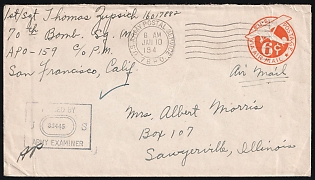 1st/Sgt Thomas Zipsich 16017882
70th Bomb. Sq. M.
APO-159 c/o P.M.
San Francisco, Calif
U.S. ARMY POSTAL SERVICE
8 AM
JAN 10
194
6¢
Air Mail
Mrs. Albert Morris
Box 107
Sawyerville, Illinois
BY
S
ARMY EXAMINER